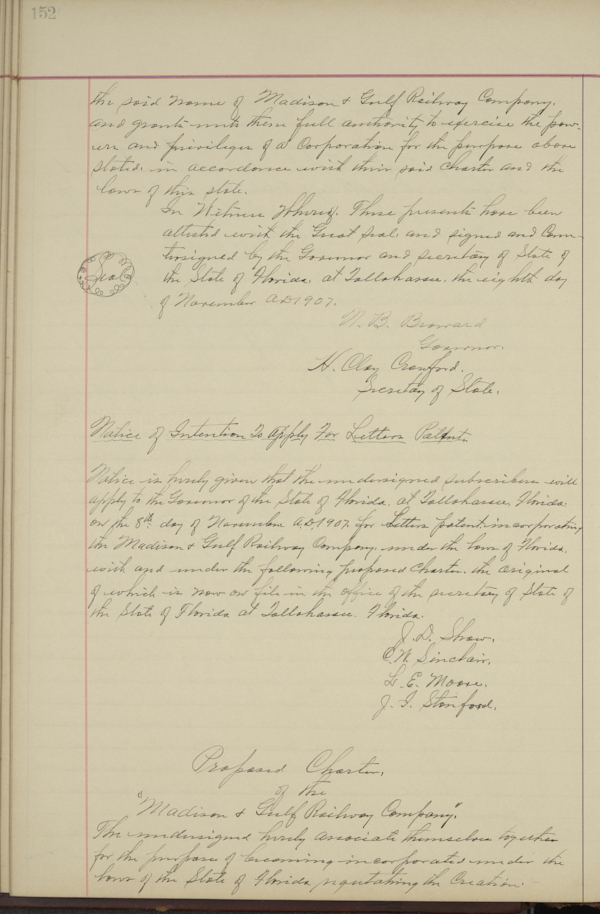 152
the said name of Madison & Gulf Railway Company.
and grants unto them full authority to exercise the pow-
ers and privileges of a Corporation for the purpose above
stated, in accordance with their said Charter and the
laws of this state.
In Witness Whereof. These presents have been
attested with the Great Seal and signed and Coun-
tersigned by the Governor and Secretary of State of
Seal
the State of Florida, at Tallahassee, the eighth day
of November A.D. 1907.
N. B. Broward
Governor.
H. Clay Crawford.
Secretary of State.
Notice of Intention To Apply For Letters Patent.
Notice is hereby given that the undersigned subscribers will
apply to the Governor of the State of Florida, at Tallahassee, Florida
on the 8th day of November A.D. 1907 for Letters patent incorporating
the Madison & Gulf Railway Company, under the laws of Florida,
with and under the following proposed Charter, the original
of which is now on file in the office of the Secretary of State of
the State of Florida at Tallahassee, Florida.
J. D. Shaw.
C. W. Sinclair.
L. E. Moore.
J. F. Stanford.
Proposed Charter,
of the
"Madison & Gulf Railway Company".
The undersigned hereby associate themselves together
for the purpose of becoming incorporated under the
laws of the State of Florida regulating the Creation